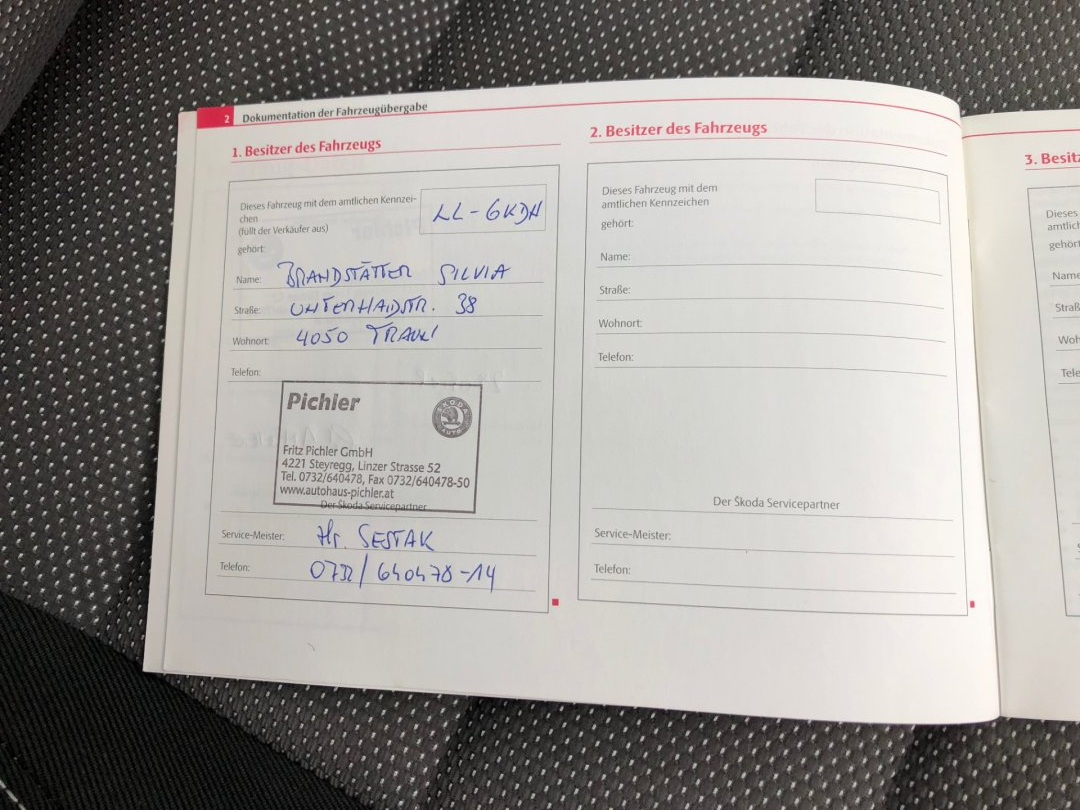 2 Dokumentation der Fahrzeugübergabe
1. Besitzer des Fahrzeugs
Dieses Fahrzeug mit dem amtlichen Kennzei-
chen
(füllt der Verkäufer aus)
LL-6KDH
gehört:
Name: BRANDSTÄTTER SILVIA
Straße: UNTERHAIDSTR. 38
Wohnort: 4050 TRAUN
Telefon:
Pichler
SKODA
AUTO
Fritz Pichler GmbH
4221 Steyregg, Linzer Strasse 52
Tel. 0732/640478, Fax 0732/640478-50
www.autohaus-pichler.at
Der Škoda Servicepartner
Service-Meister: Hr. SESTAK
Telefon: 0732/640478-14
2. Besitzer des Fahrzeugs
Dieses Fahrzeug mit dem
amtlichen Kennzeichen
gehört:
Name:
Straße:
Wohnort:
Telefon:
Der Škoda Servicepartner
Service-Meister:
Telefon:
3.
Dieses
gehört
Name